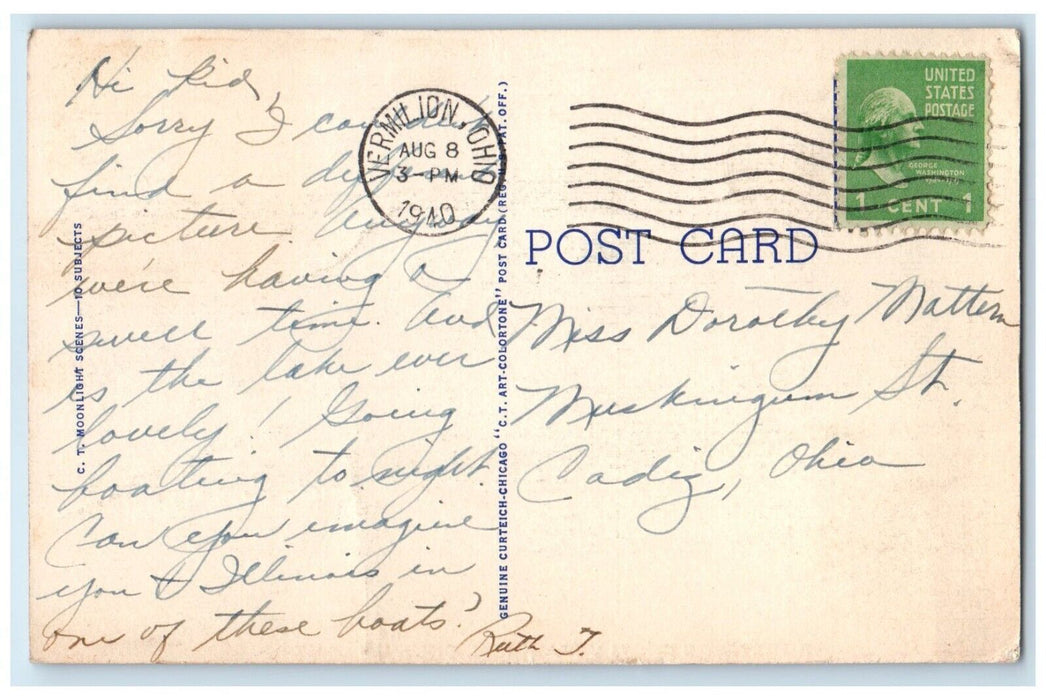 Hi Kid,
Sorry I couldn't
find a different
picture. Anyway
we're having a
swell time. And
is the lake ever
lovely! Going
boating to-night.
Can you imagine
you & Illinois in
one of these boats?
Ruth T.
C. T. MOONLIGHT SCENES—10 SUBJECTS
VERMILION, OHIO
AUG 8
3 - PM
1940
GENUINE CURTEICH-CHICAGO "C.T. ART-COLORTONE" POST CARD (REG. U.S. PAT. OFF.)
UNITED
STATES
POSTAGE
GEORGE
WASHINGTON
1 CENT 1
POST CARD
Miss Dorothy Mattern
Muskingum St.
Cadiz, Ohio